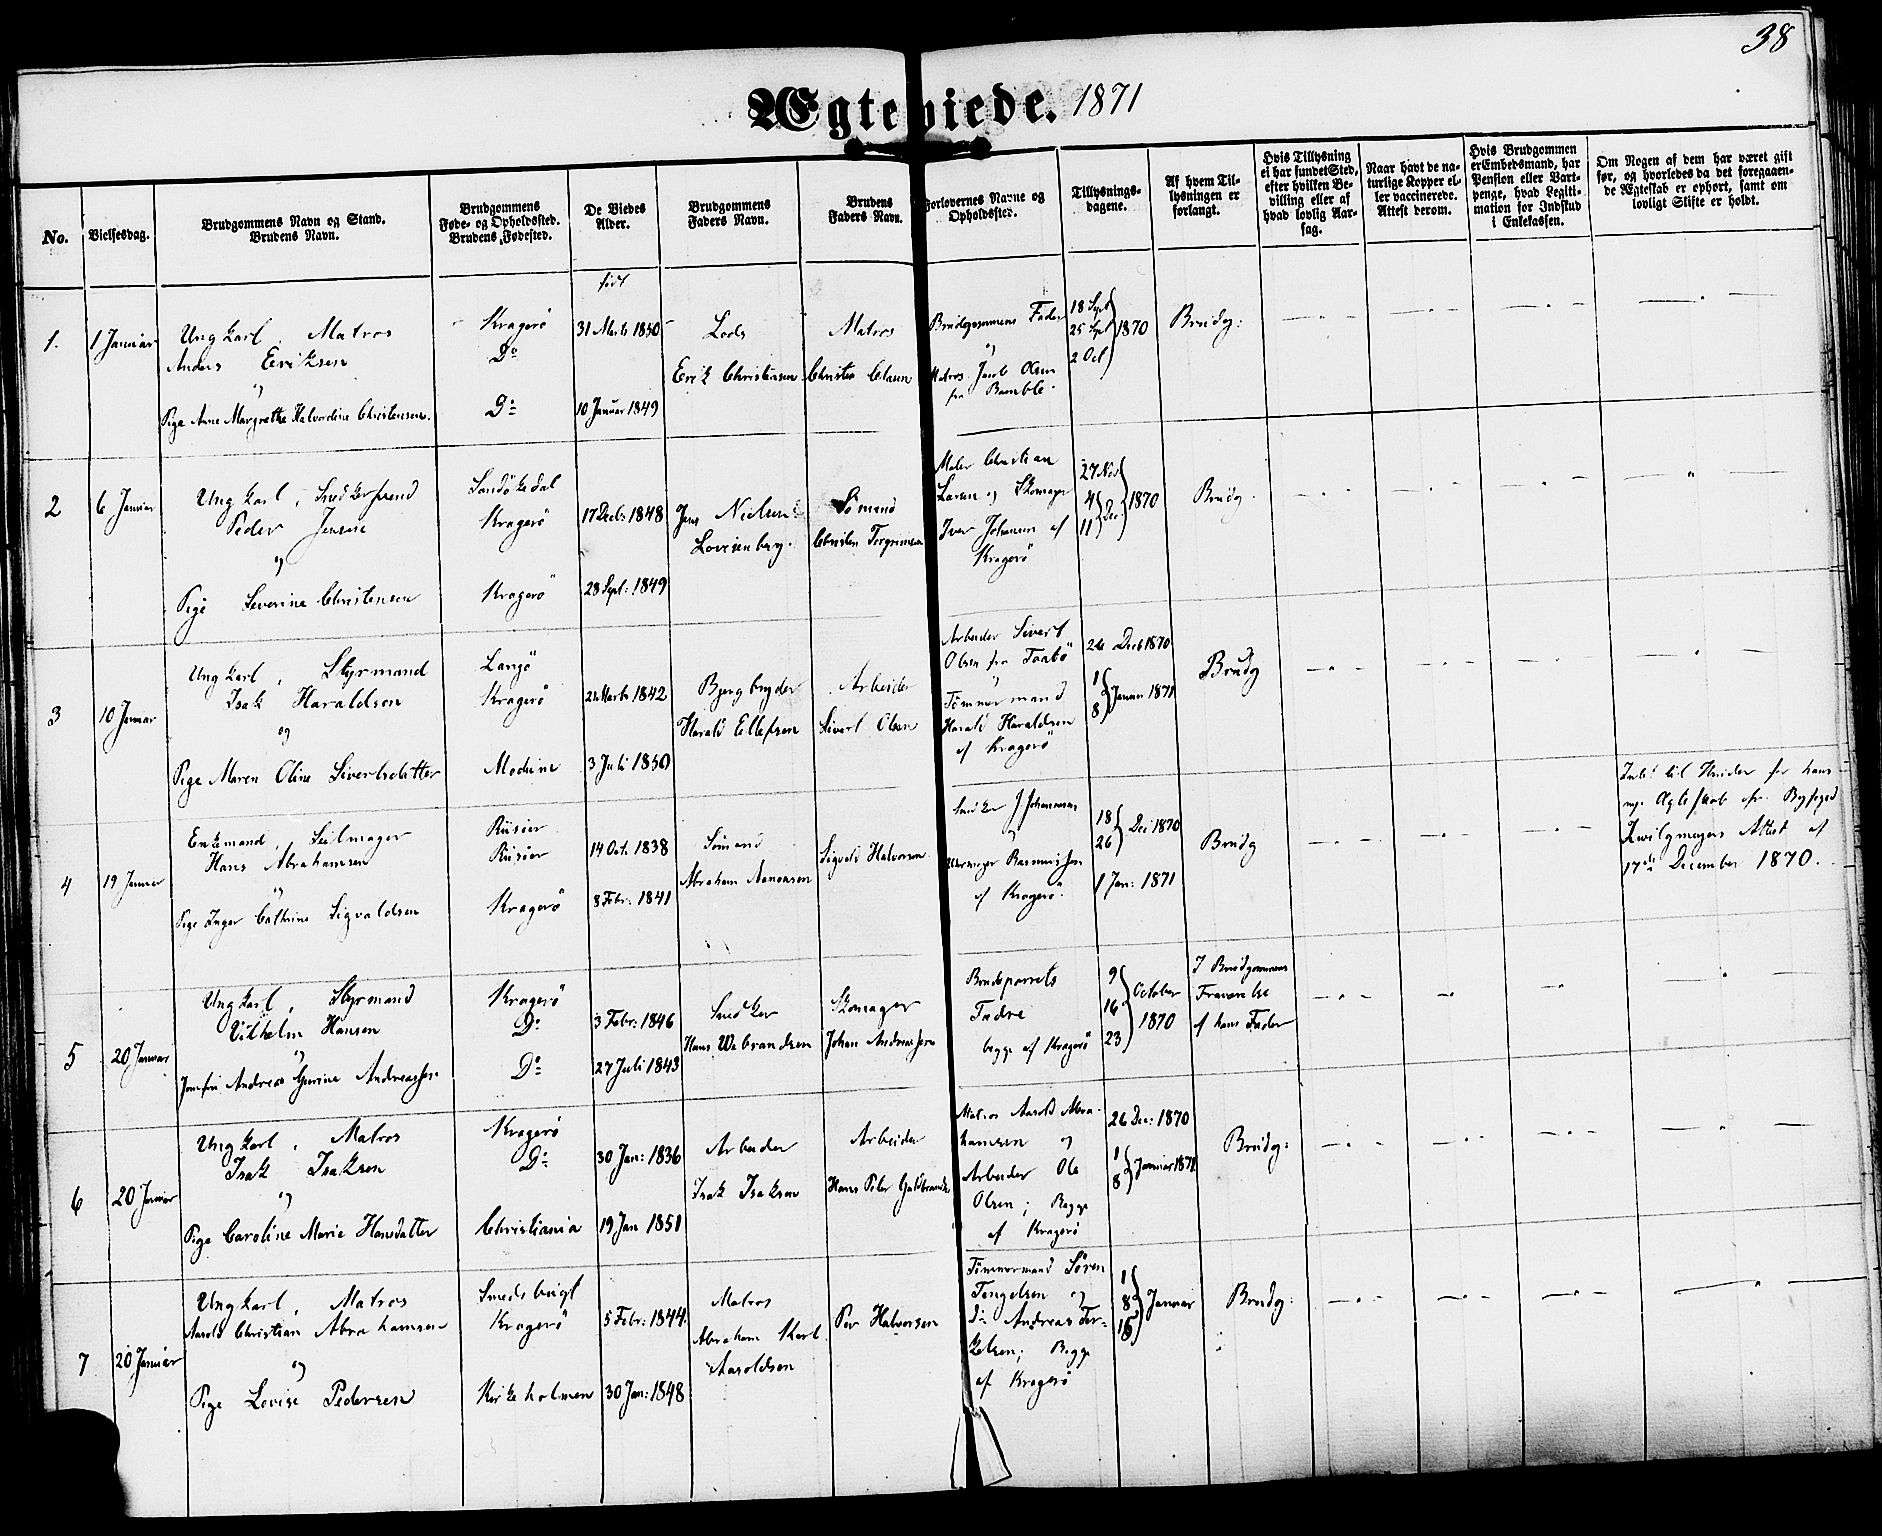 38
Ægteviede. 1871
No.
Vielsesdag.
Brudgommens Navn og Stand.
Brudens Navn.
Brudgommens
Føde- og Opholdssted.
Brudens Fødested.
De Viedes
Alder.
Brudgommens
Faders Navn.
Brudens
Faders Navn.
Forlovernes Navne og
Opholdssted.
Tillysnings-
dagene.
Af hvem Til-
lysningen er
forlangt.
Hvis Tillysning
ei har fundet Sted,
efter hvilken Be-
villing eller af
hvad lovlig Aar-
sag.
Naar havt de na-
turlige Kopper el-
ler vaccinerede.
Attest derom.
Hvis Brudgommen
er Embedsmand, har
Pension eller Vart-
penge, hvad Legiti-
mation for Indskud
i Enkekassen.
Om Nogen af dem har været gift
før, og hvorledes da det foregaaen-
de Ægteskab er ophørt, samt om
lovligt Skifte er holdt.
født
1.
1 Januar
Ungkarl, Matros
Anders Eriksen
og
Pige Anne Margrethe Halvordine Christensen.
Kragerö
Do
Do
31 Marts 1850
10 Januar 1849
Lods
Erik Christensen
Matros
Brudgommens Fader
og
Matros Jacob Olsen
fra Bamble.
18 Sept
25 Sept
2 Oct
1870
Brudg:
2
6 Januar
Ungkarl, Snedkersvend
Peder Jensen
og
Pige Severine Christensen
Sandökedal
Kragerö
Kragerö
17 Decb: 1848
28 Sept: 1849
Jens Nielsen
Lovisenberg.
Sömand
Christen Torgrimsen
Maler Christian
Larsen og Skomager
Iver Johansen af
Kragerö
27 Nov
4
11
Dec
1870
Brudg.
3
10 Januar
Ungkarl, Styrmand
Isak Haraldsen
og
Pige Maren Oline Sivertsdatter
Langö
Kragerö
Modum
Marts 1842
3 Juli 1850
Bjergbryder
Harald Ellefsen
Arbeider
Sivert Olsen
Arbeider Sivert
Olsen fra Taatö
og
Tömmermand
Harald Haraldsen
af Kragerö
26 Decb 1870
1
8
Januar 1871
Brudg
4
19 Januar
Enkemand, Seilmager
Hans Abrahamsen
og
Pige Inger Cathrine Sigvaldsen
Risøer
Risøer
Kragerö
14 Oct. 1838
8 Febr: 1841
Sömand
Abraham Aanonsen
Sigvald Halvorsen
Snedker J Johannesen
og
Uhrmager Rasmussen
af Kragerö.
18
26
Dec 1870
1 Jan: 1871
Brudg
Intet til Hinder for hans
nye Ægteskab efr. Byfoged
Zwilgmeyers Attest af
17de December 1870.
5
20 Januar
Ungkarl, Styrmand
Vilhelm Hansen
og
Jomfru Andrea Gurine Andreassen
Kragerö
Do
Do
3 Febr: 1846
27 Juli 1843
Snedker
Hans Webrandsen
Skomager
Johan Andreassen
Brudeparrets
Fædre
begge af Kragerö
9
16
23
October
1870
I Brudgommens
Fraværelse
af hans Fader
6
20 Januar
Ungkarl, Matros
Isak Isaksen
og
Pige Caroline Marie Hansdatter
Kragerö
Do
Christiania
30 Jan: 1836
19 Jan 1851
Arbeider
Isak Isaksen
Arbeider
Hans Peter
Matros Aarold Abra-
hamsen og
Arbeider Ole
Olsen; Begge
af Kragerö
26 Dec: 1870
1
8
Januar 1871
Brudg:
7
20 Januar
Ungkarl, Matros
Aarold Christian Abrahamsen
og
Pige Lovise Pedersen
Smedsbugt
Kragerö
Kirkeholmen
5 Febr: 1844.
30 Jan: 1848
Matros
Abraham Karl
Aaroldsen
Per Halvorsen
Tömmermand Sören
Tengelsen og
Do Andreas Ter-
kelsen; Begge
af Kragerö
1
8
15
Januar
Brudg: